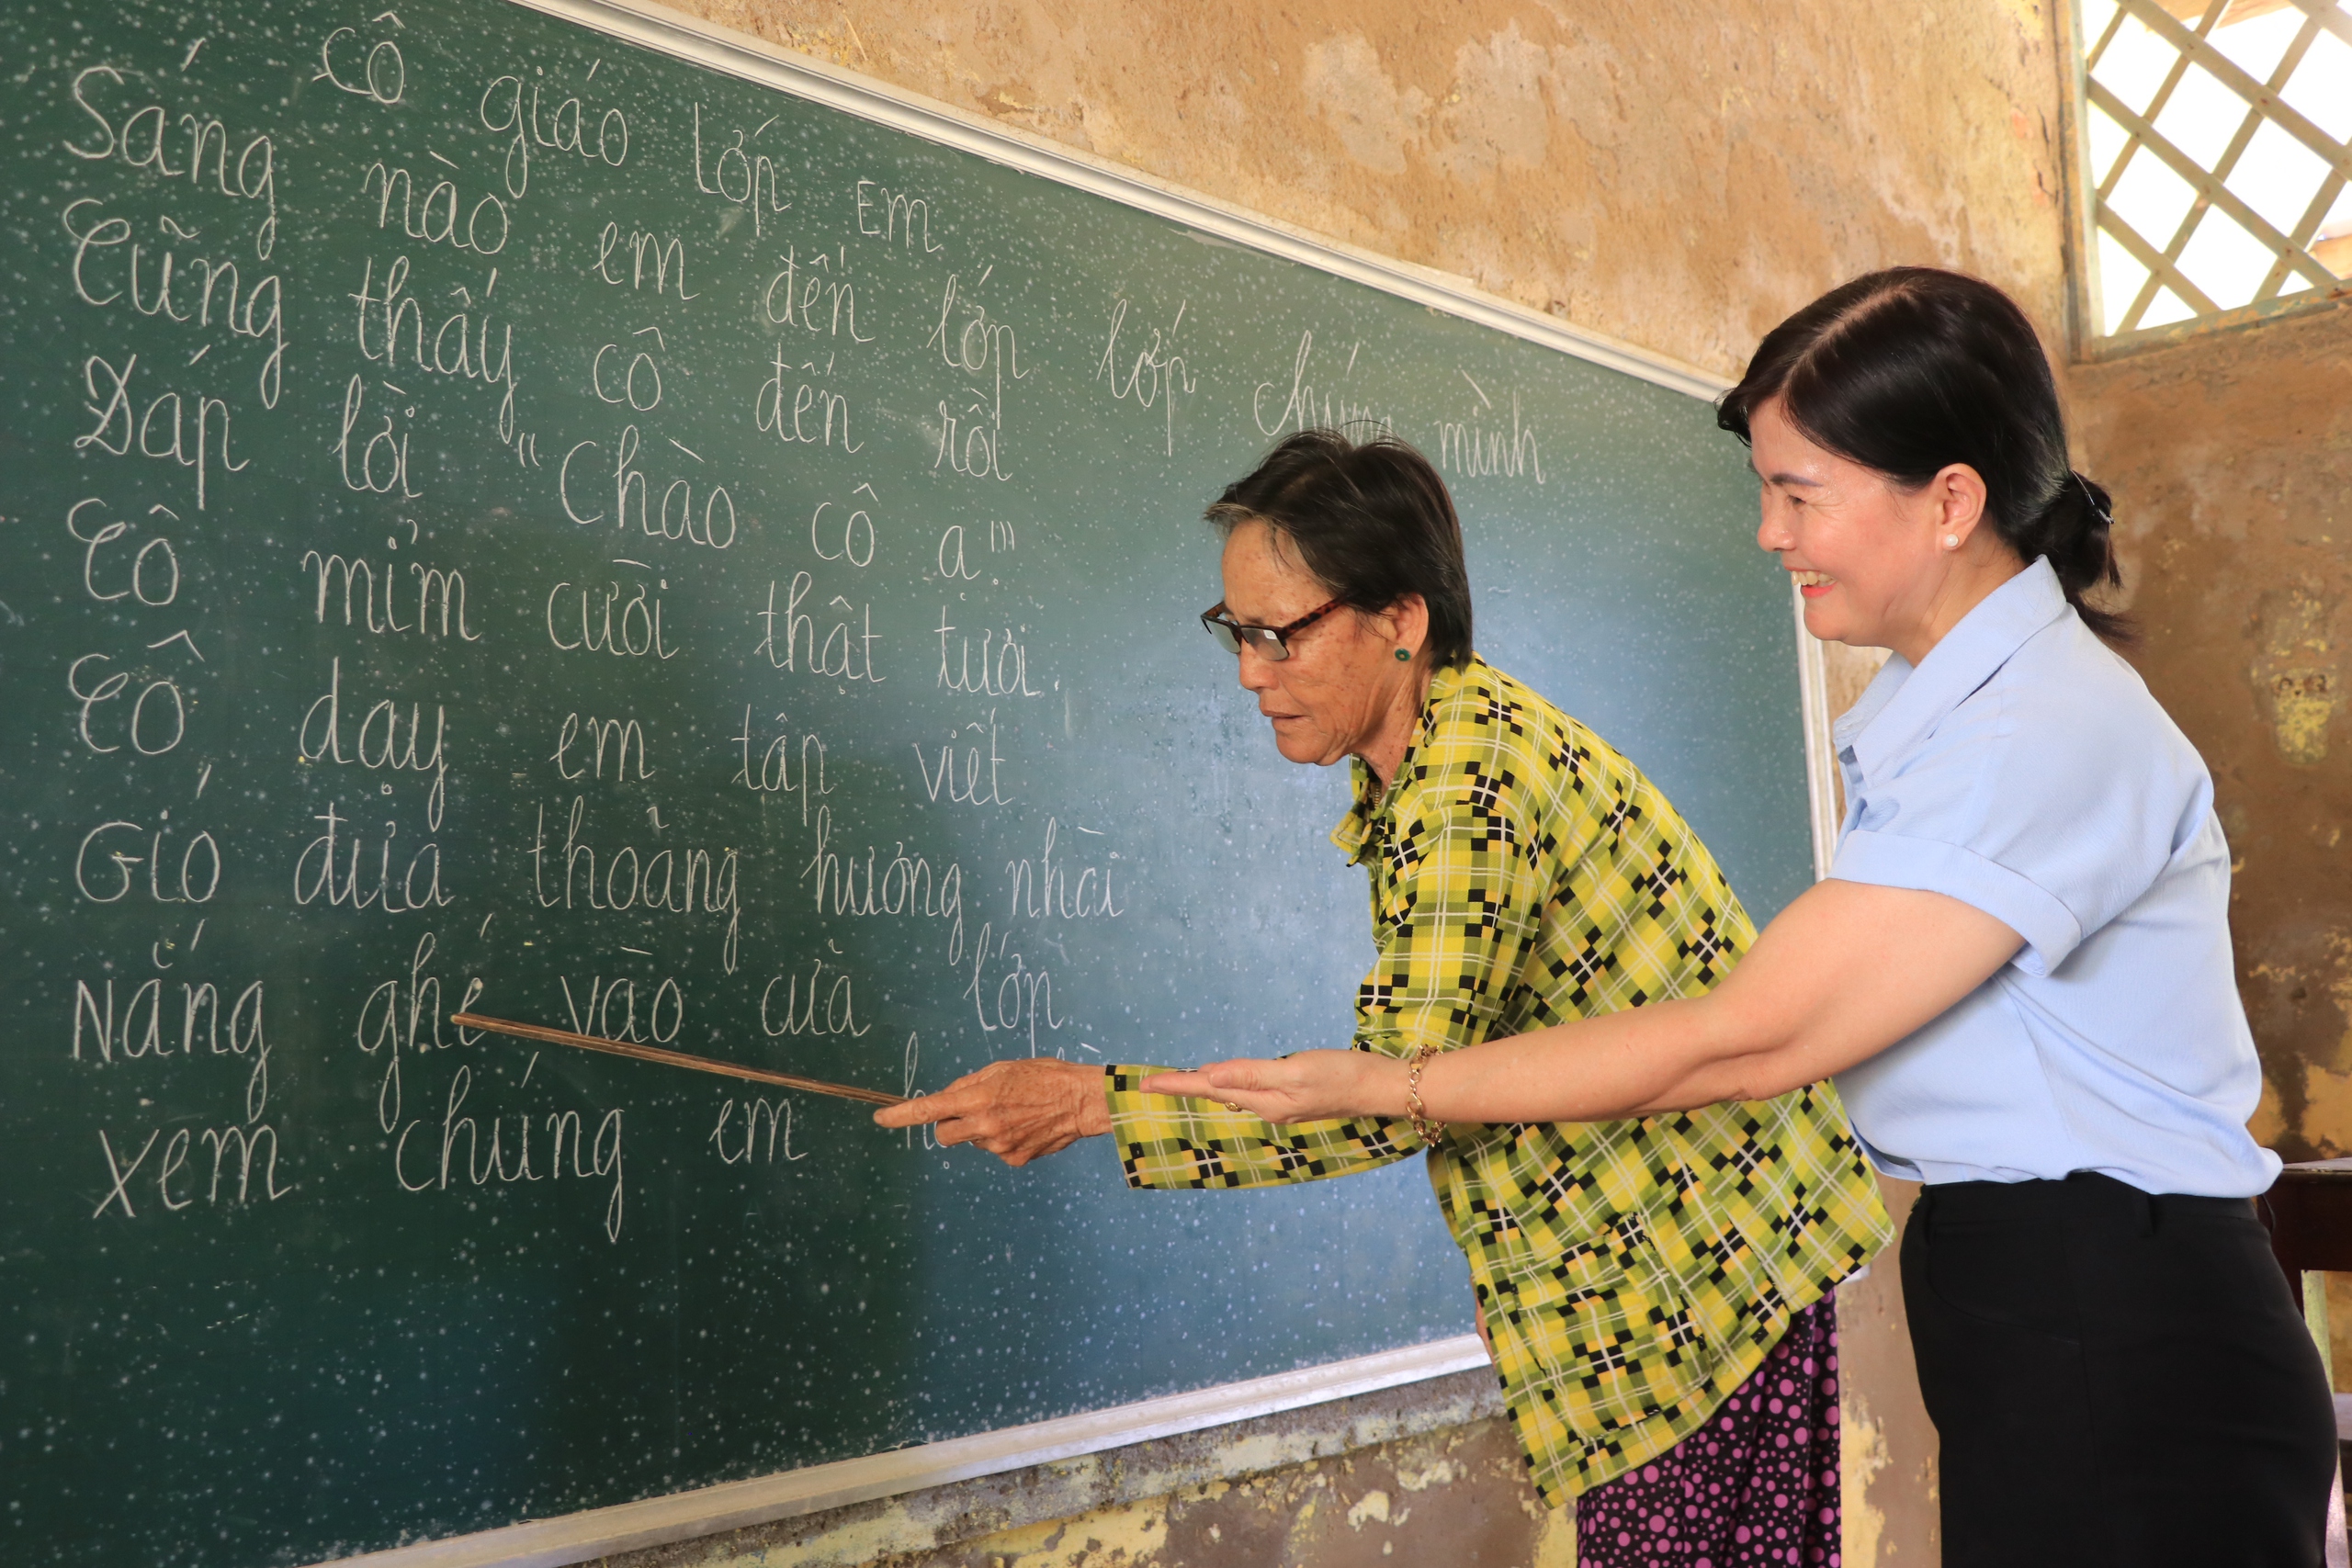 Cô giáo lớp Em
Sáng nào em đến lớp lớp chúng mình
Cũng thấy cô đến rồi
Đáp lời "Chào cô ạ!"
Cô mỉm cười thật tươi.
Cô dạy em tâp viết
Gió đưa thoảng hương nhài
Nắng ghé vào cửa lớp
Xem chúng em